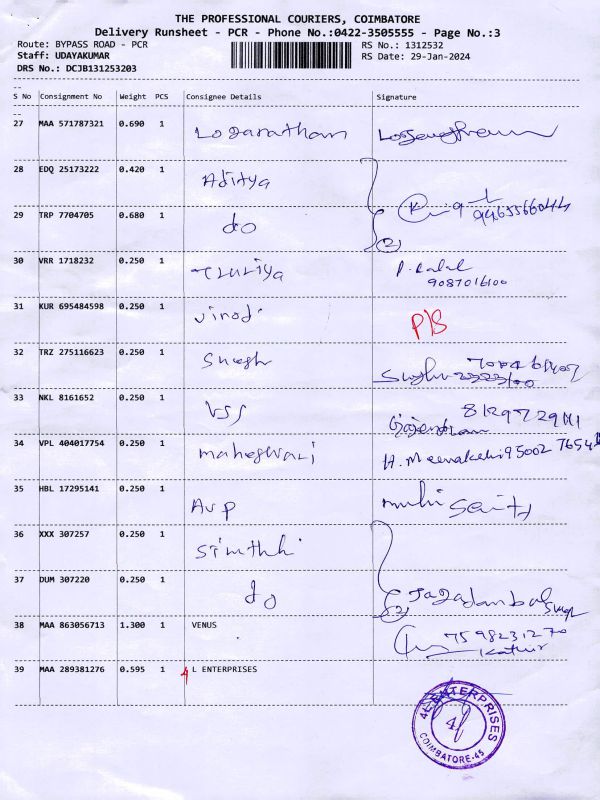 THE PROFESSIONAL COURIERS, COIMBATORE
Delivery Runsheet - PCR - Phone No.:0422-3505555 - Page No.:3
Route: BYPASS ROAD - PCR
RS No.: 1312532
Staff: UDAYAKUMAR
RS Date: 29-Jan-2024
DRS No.: DCJB131253203
S No Consignment No Weight PCS Consignee Details Signature
27 MAA 571787321 0.690 1 Logaratham
28 EDQ 25173222 0.420 1 Aditya
29 TRP 7704705 0.680 1 do
30 VRR 1718232 0.250 1
9087016100
31 KUR 695484598 0.250 1 Vinod P/S
32 TRZ 275116623 0.250 1
33 NKL 8161652 0.250 1 VSS
34 VPL 404017754 0.250 1 maheswari H. Meenakshi 95002
35 HBL 17295141 0.250 1 Avp
36 XXX 307257 0.250 1
37 DUM 307220 0.250 1 do Jagadambal
38 MAA 863056713 1.300 1 VENUS 7598231270
Kathir
39 MAA 289381276 0.595 1 4 L ENTERPRISES
4L ENTERPRISES
4L
COIMBATORE-45